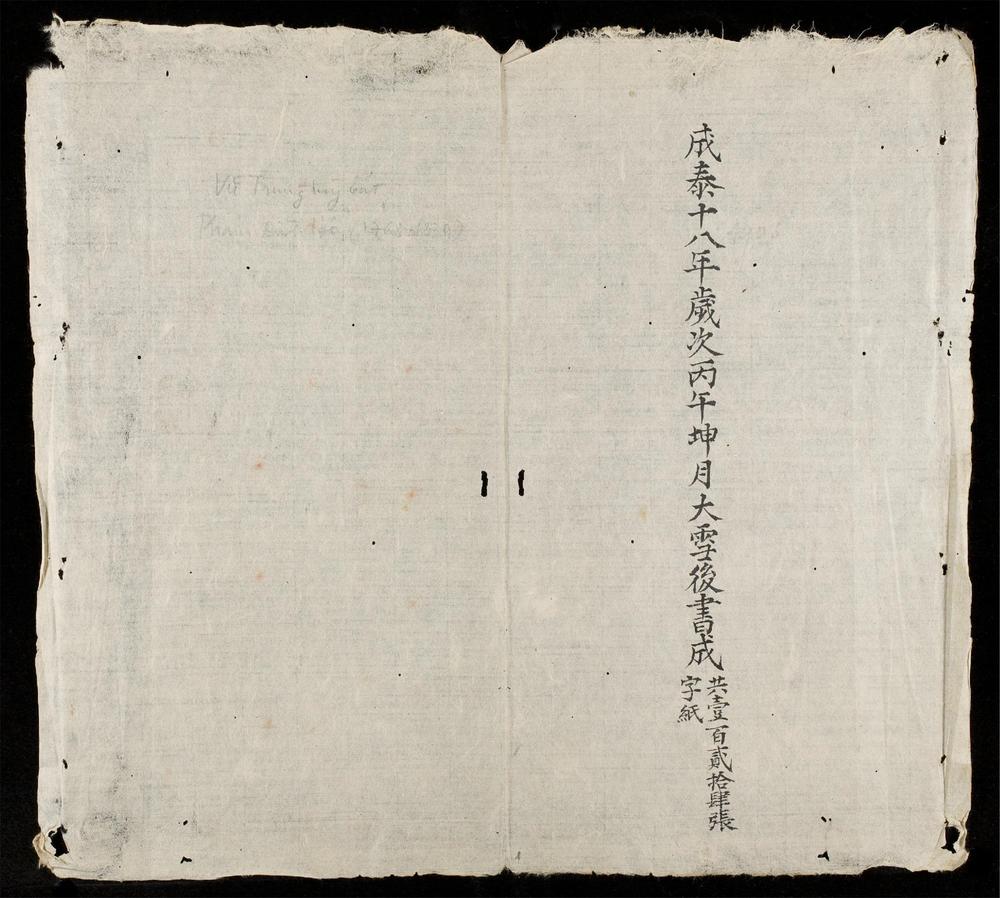 成泰十八年歲次丙午坤月大雪後書成
共壹百貳拾肆張
字紙
Vũ Trung tùy bút
Phạm Đình Hổ